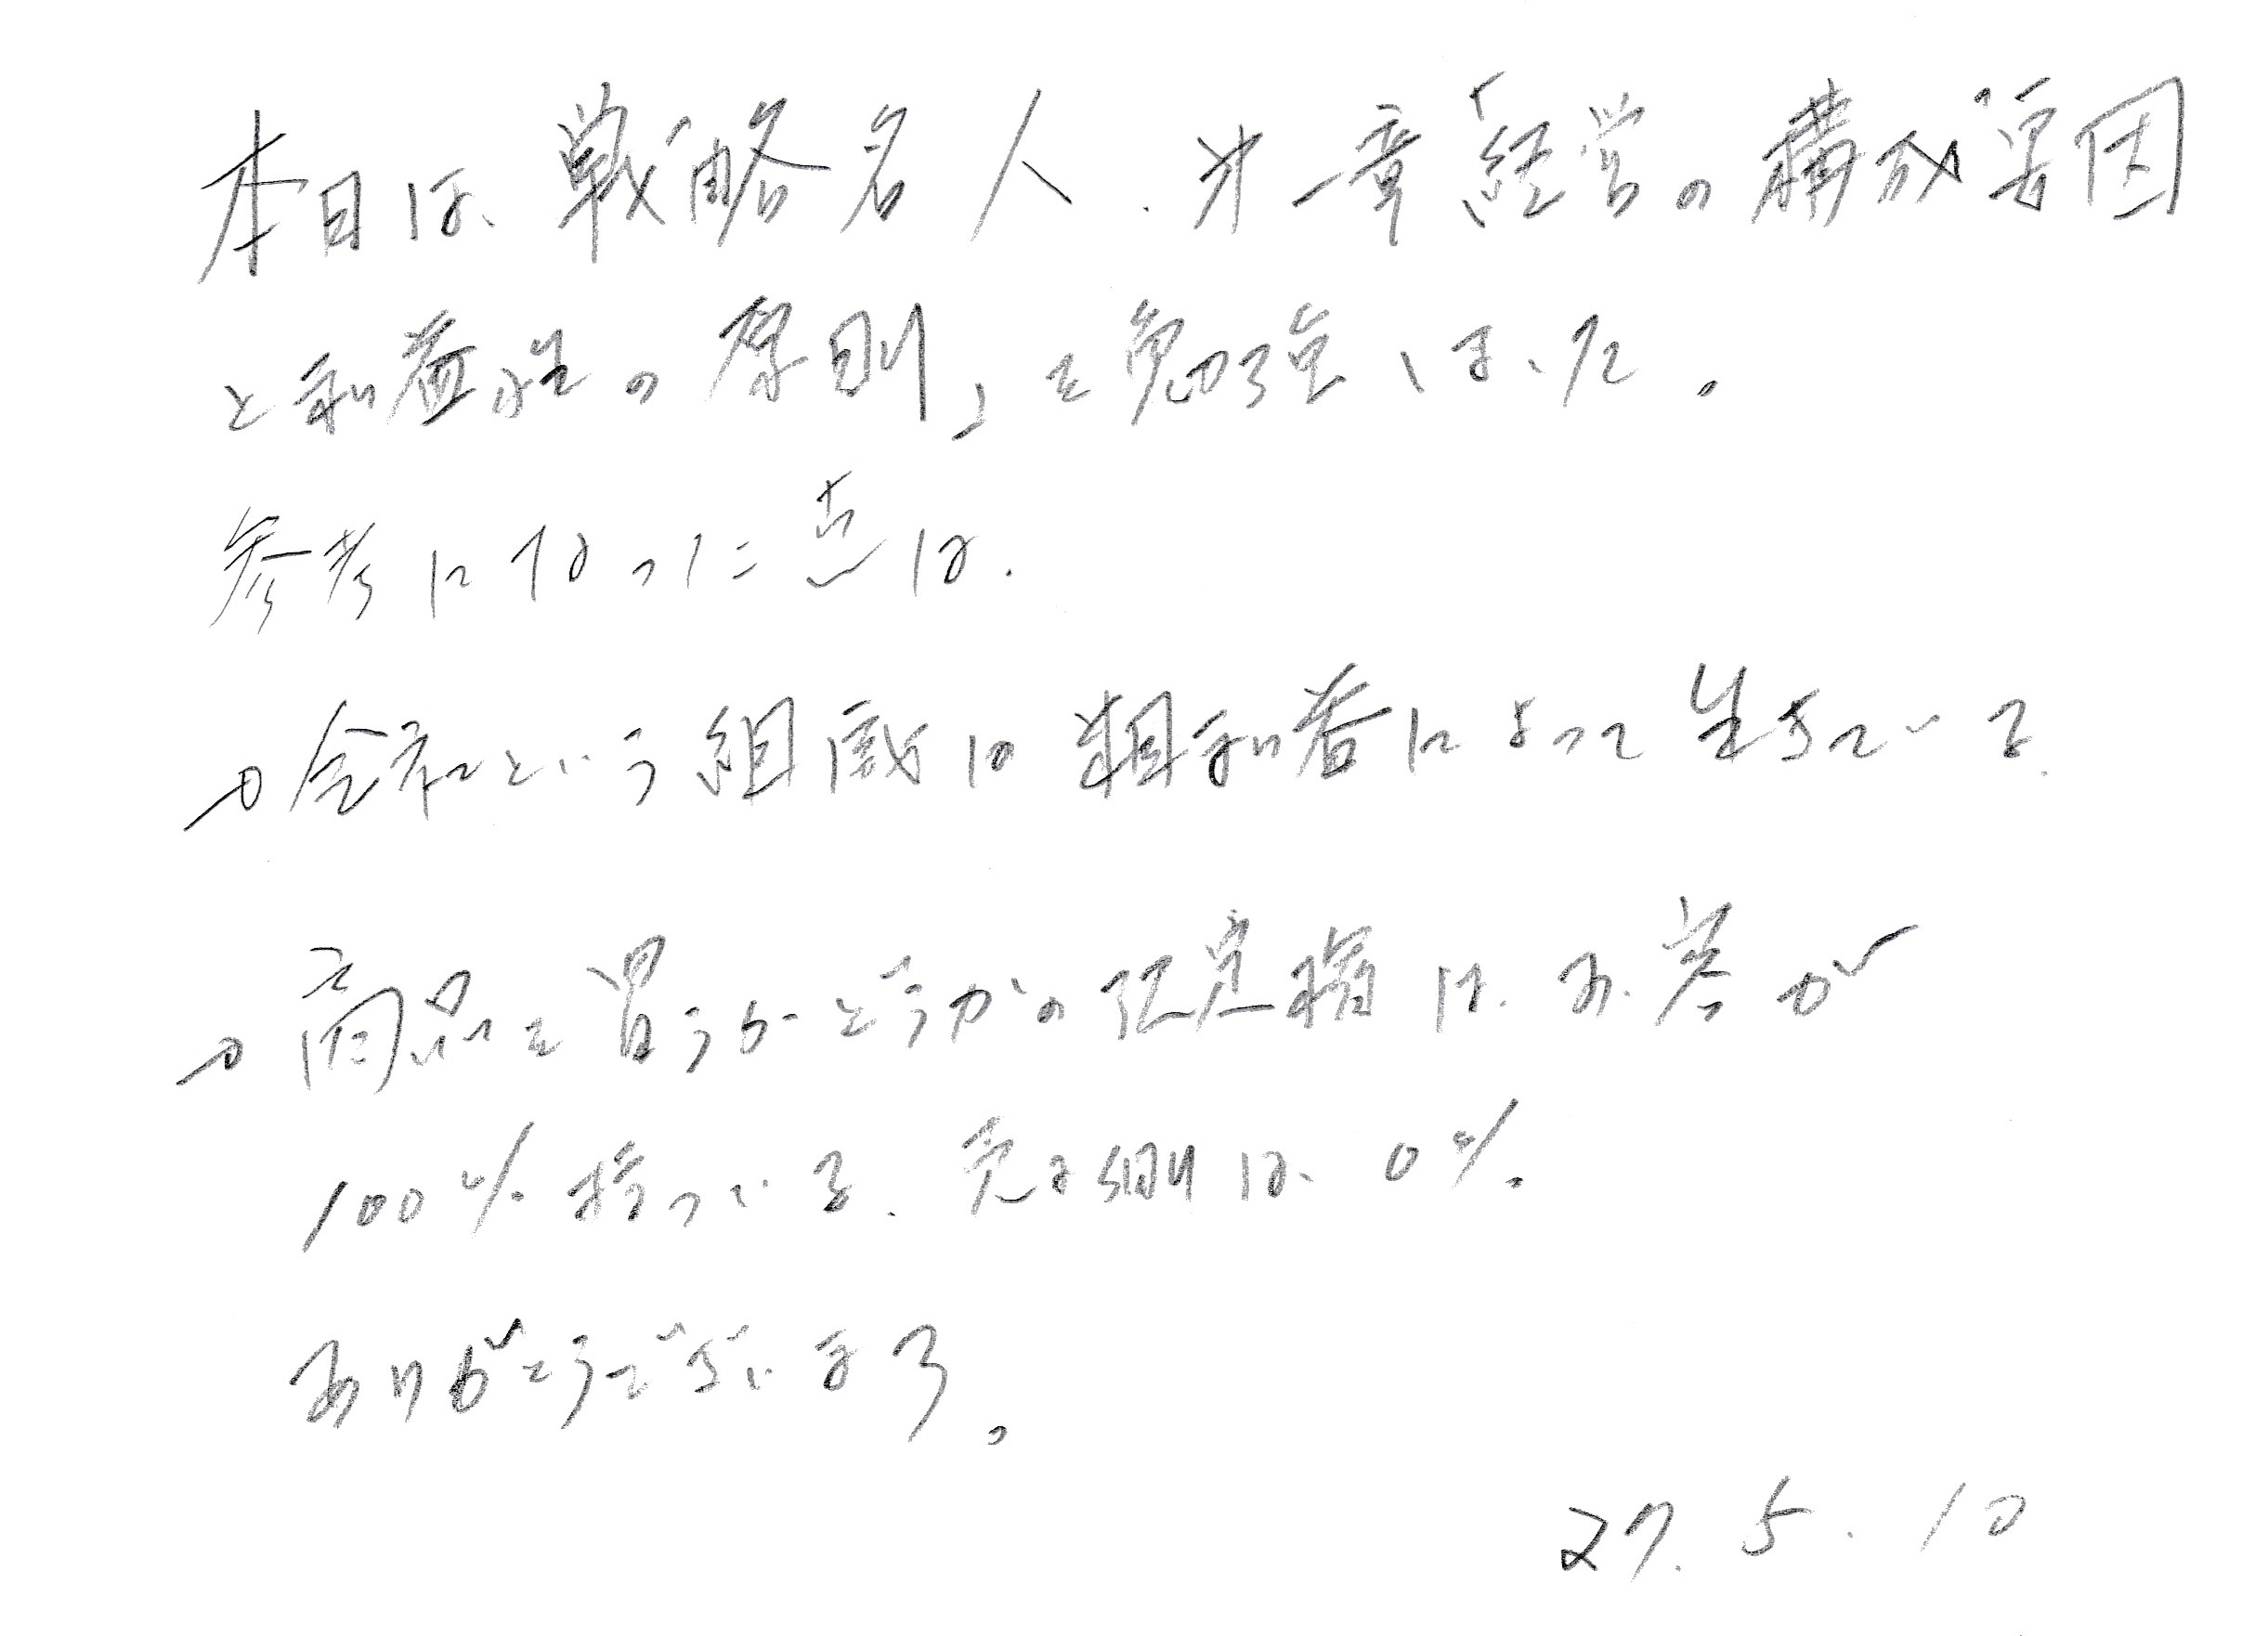 本日は、戦略名人、才一章「経営の構成要因
と利益性の原則」を勉強しました。
参考になった点は、
→会社という組織は粗利益によって生きている。
→商品を買うかどうかの決定権は、お客が
100%持っている、売る側は、0%。
ありがとうございます。
27.5.10